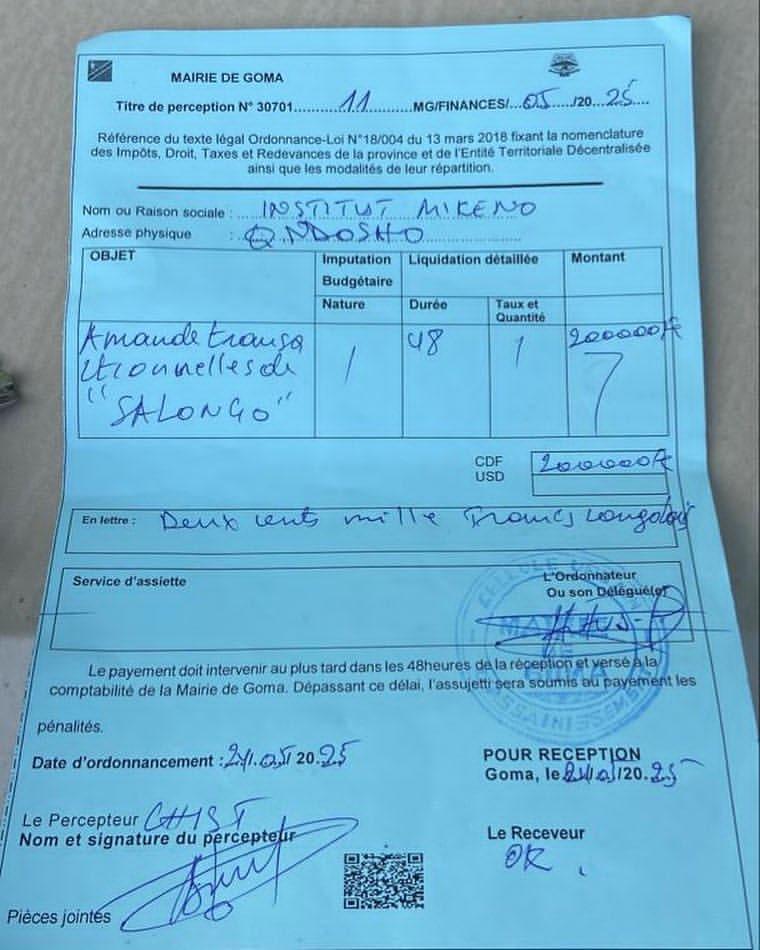 MAIRIE DE GOMA
Titre de perception N° 30701..........11..........MG/FINANCES/...05...../20...25....
Référence du texte légal Ordonnance-Loi N°18/004 du 13 mars 2018 fixant la nomenclature
des Impôts, Droit, Taxes et Redevances de la province et de l'Entité Territoriale Décentralisée
ainsi que les modalités de leur répartition.
Nom ou Raison sociale : INSTITUT MIKENO
Adresse physique : Q. NDOSHO
OBJET Imputation Budgétaire Liquidation détaillée Montant
Nature Durée Taux et Quantité
Amande transa
ctionnelles de
"SALONGO"
1 48 1 200000Fc
CDF 200000Fc
USD
En lettre : Deux cents mille Francs congolais
Service d'assiette
L'Ordonnateur
Ou son Délégué(e)
MAIRIE
ASSAINISSEMENT
Le payement doit intervenir au plus tard dans les 48heures de la réception et versé à la
comptabilité de la Mairie de Goma. Dépassant ce délai, l'assujetti sera soumis au payement les
pénalités.
Date d'ordonnancement : 24/.05/ 20.25
POUR RECEPTION
Goma, le 24/05/20.25
Le Percepteur
Nom et signature du percepteur
Le Receveur
OK.
Pièces jointes